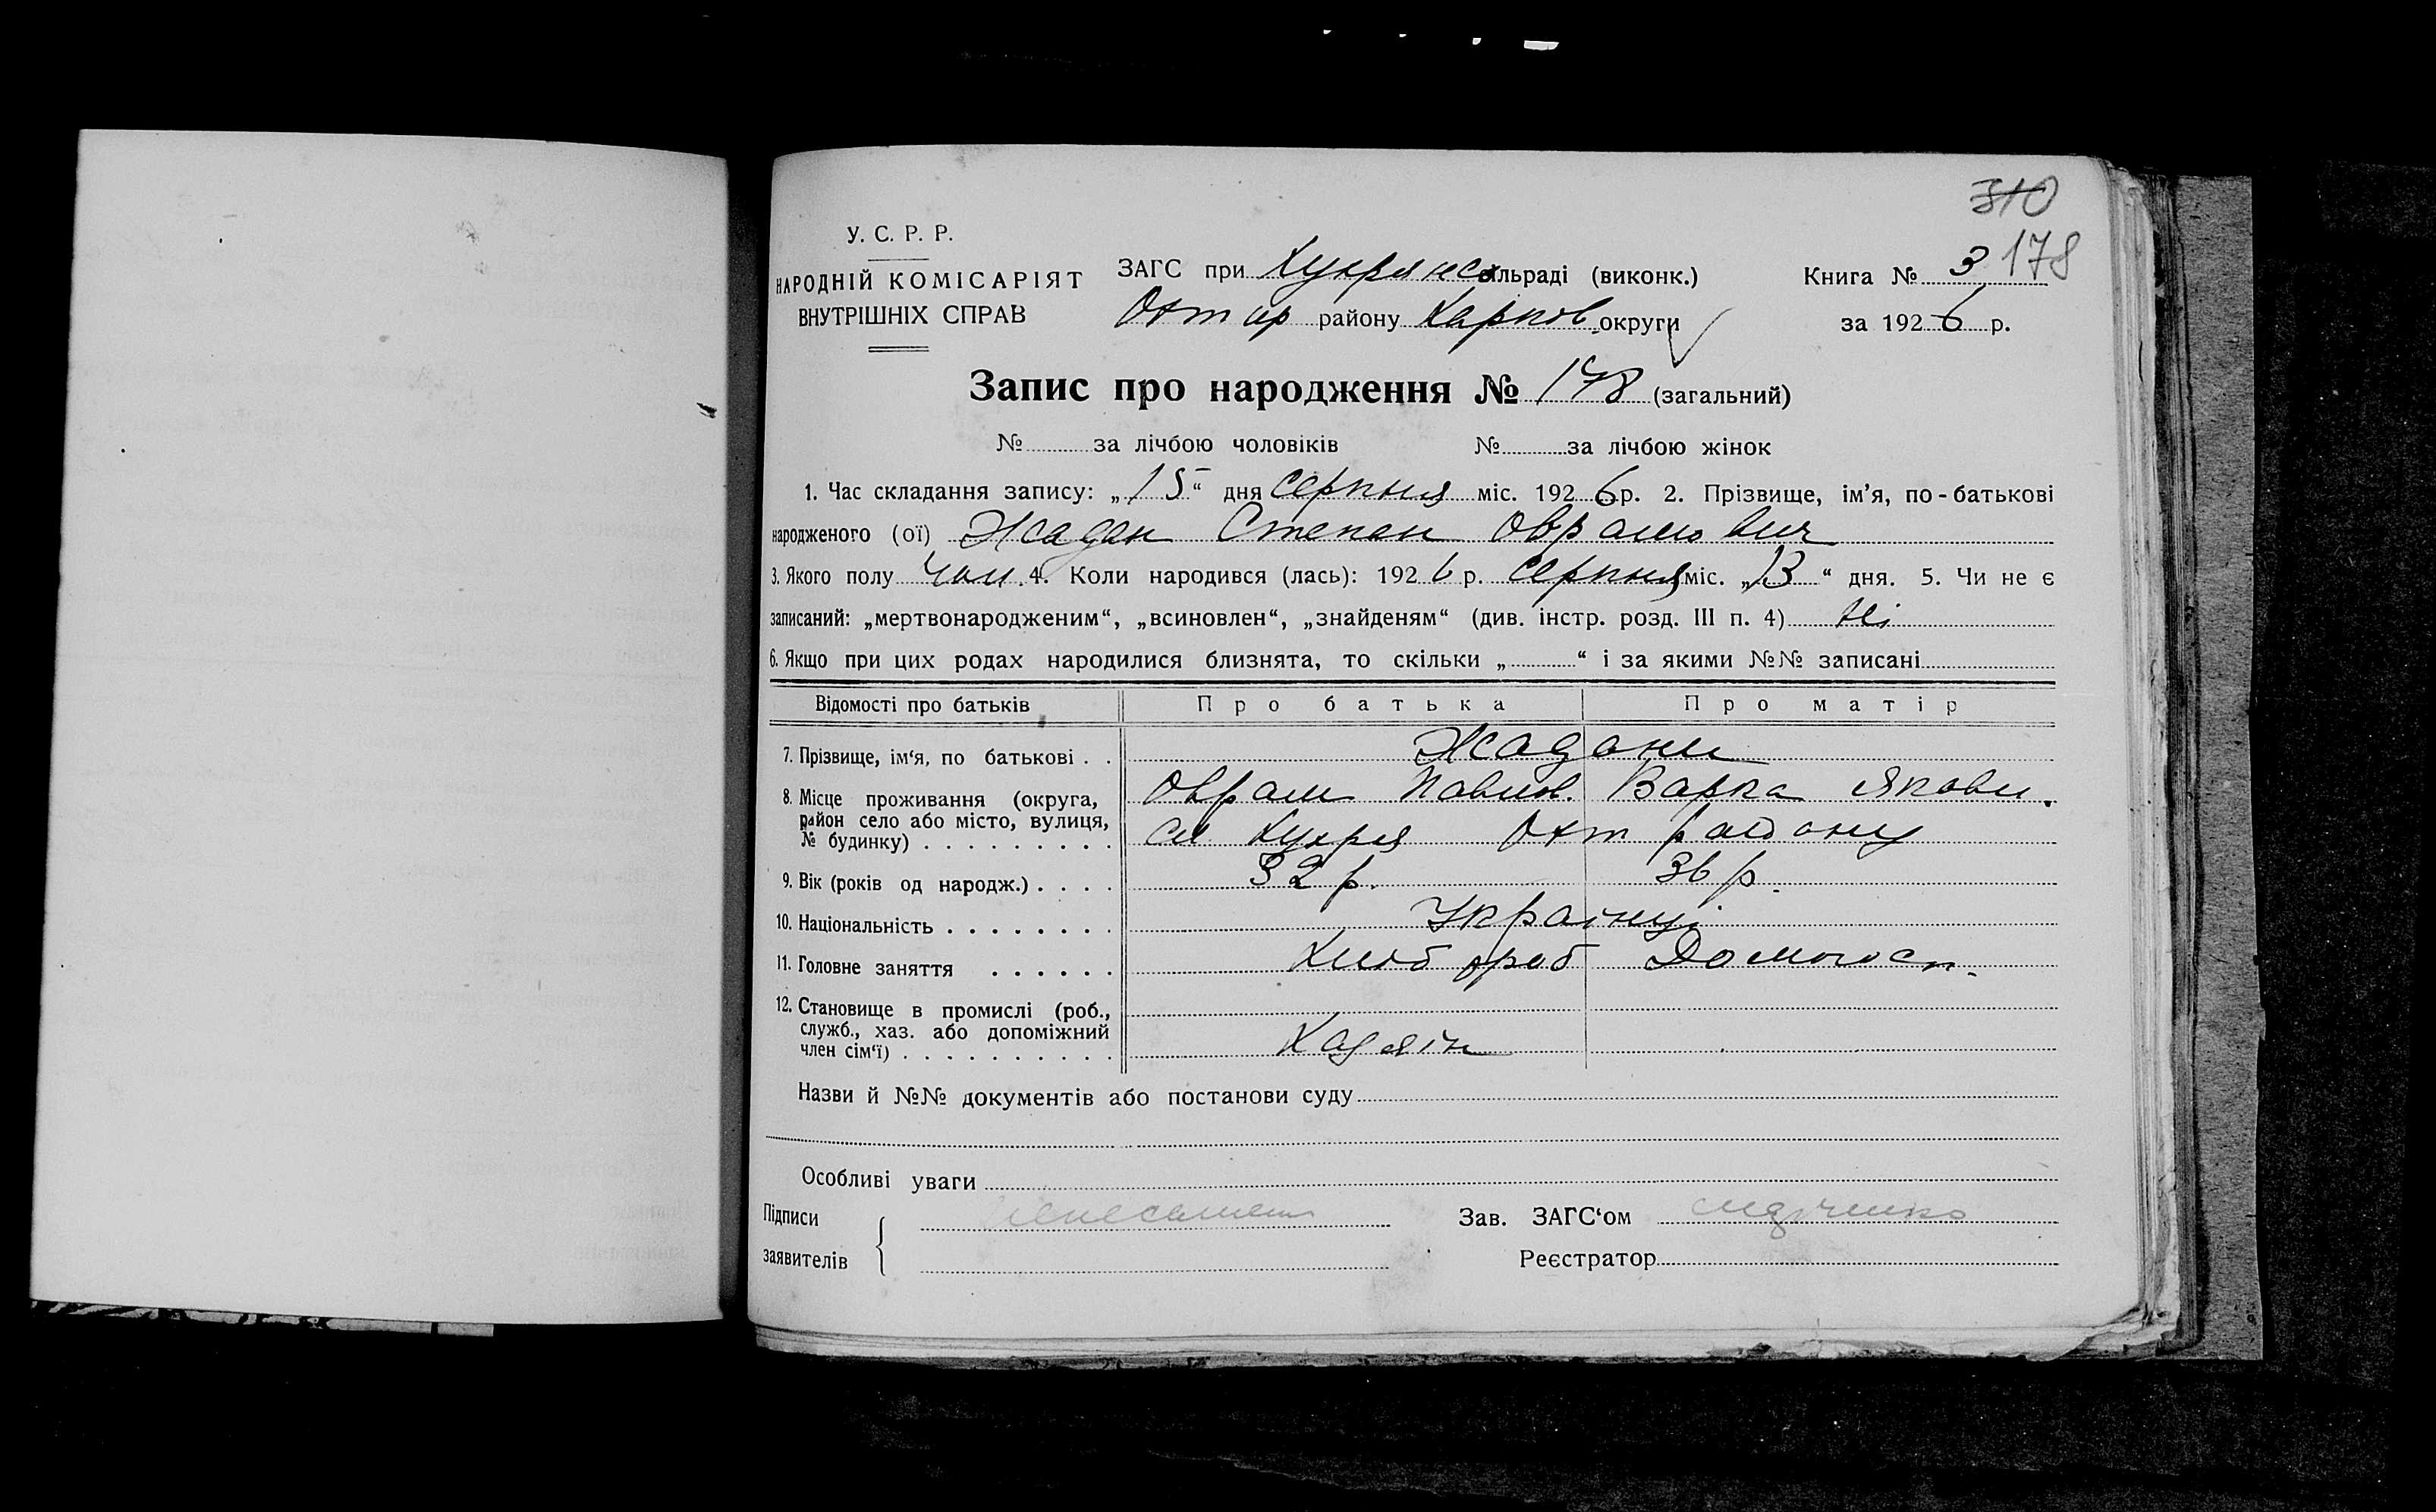 310
178
У. С. Р. Р.
НАРОДНІЙ КОМІСАРІЯТ
ВНУТРІШНІХ СПРАВ
ЗАГС при сільраді (виконк.)
Охтир району Харков. округи
Книга № 3
за 1926 р.
Запис про народження № 178 (загальний)
№ за лічбою чоловіків № за лічбою жінок
1. Час складання запису: „15“ дня серпня міс. 1926 р. 2. Прізвище, ім’я, по-батькові
народженого (ої) Жадан Степан Оврамович
3. Якого полу чол. 4. Коли народився (лась): 1926 р. серпня міс. „13“ дня. 5. Чи не є
записаний: „мертвонародженим“, „всиновлен“, „знайденям“ (див. інстр. розд. III п. 4) Ні
6. Якщо при цих родах народилися близнята, то скільки „ “ і за якими №№ записані
Відомості про батьків Про батька Про матір
7. Прізвище, ім‘я, по батькові . . Жадани
Оврам Павлов. Варка Якови.
8. Місце проживання (округа,
район село або місто, вулиця,
№ будинку) . . . . . . . . . сл Кухря Охт району
9. Вік (років од народж.) . . . . 32 р. 36 р.
10. Національність . . . . . . . . Українці
11. Головне заняття . . . . . . Хлібороб Домогосп.
12. Становище в промислі (роб.,
служб., хаз. або допоміжний
член сім‘ї) . . . . . . . . . . Хазяін
Назви й №№ документів або постанови суду
Особливі уваги
Підписи
заявителів
Зав. ЗАГС‘ом
Реєстратор